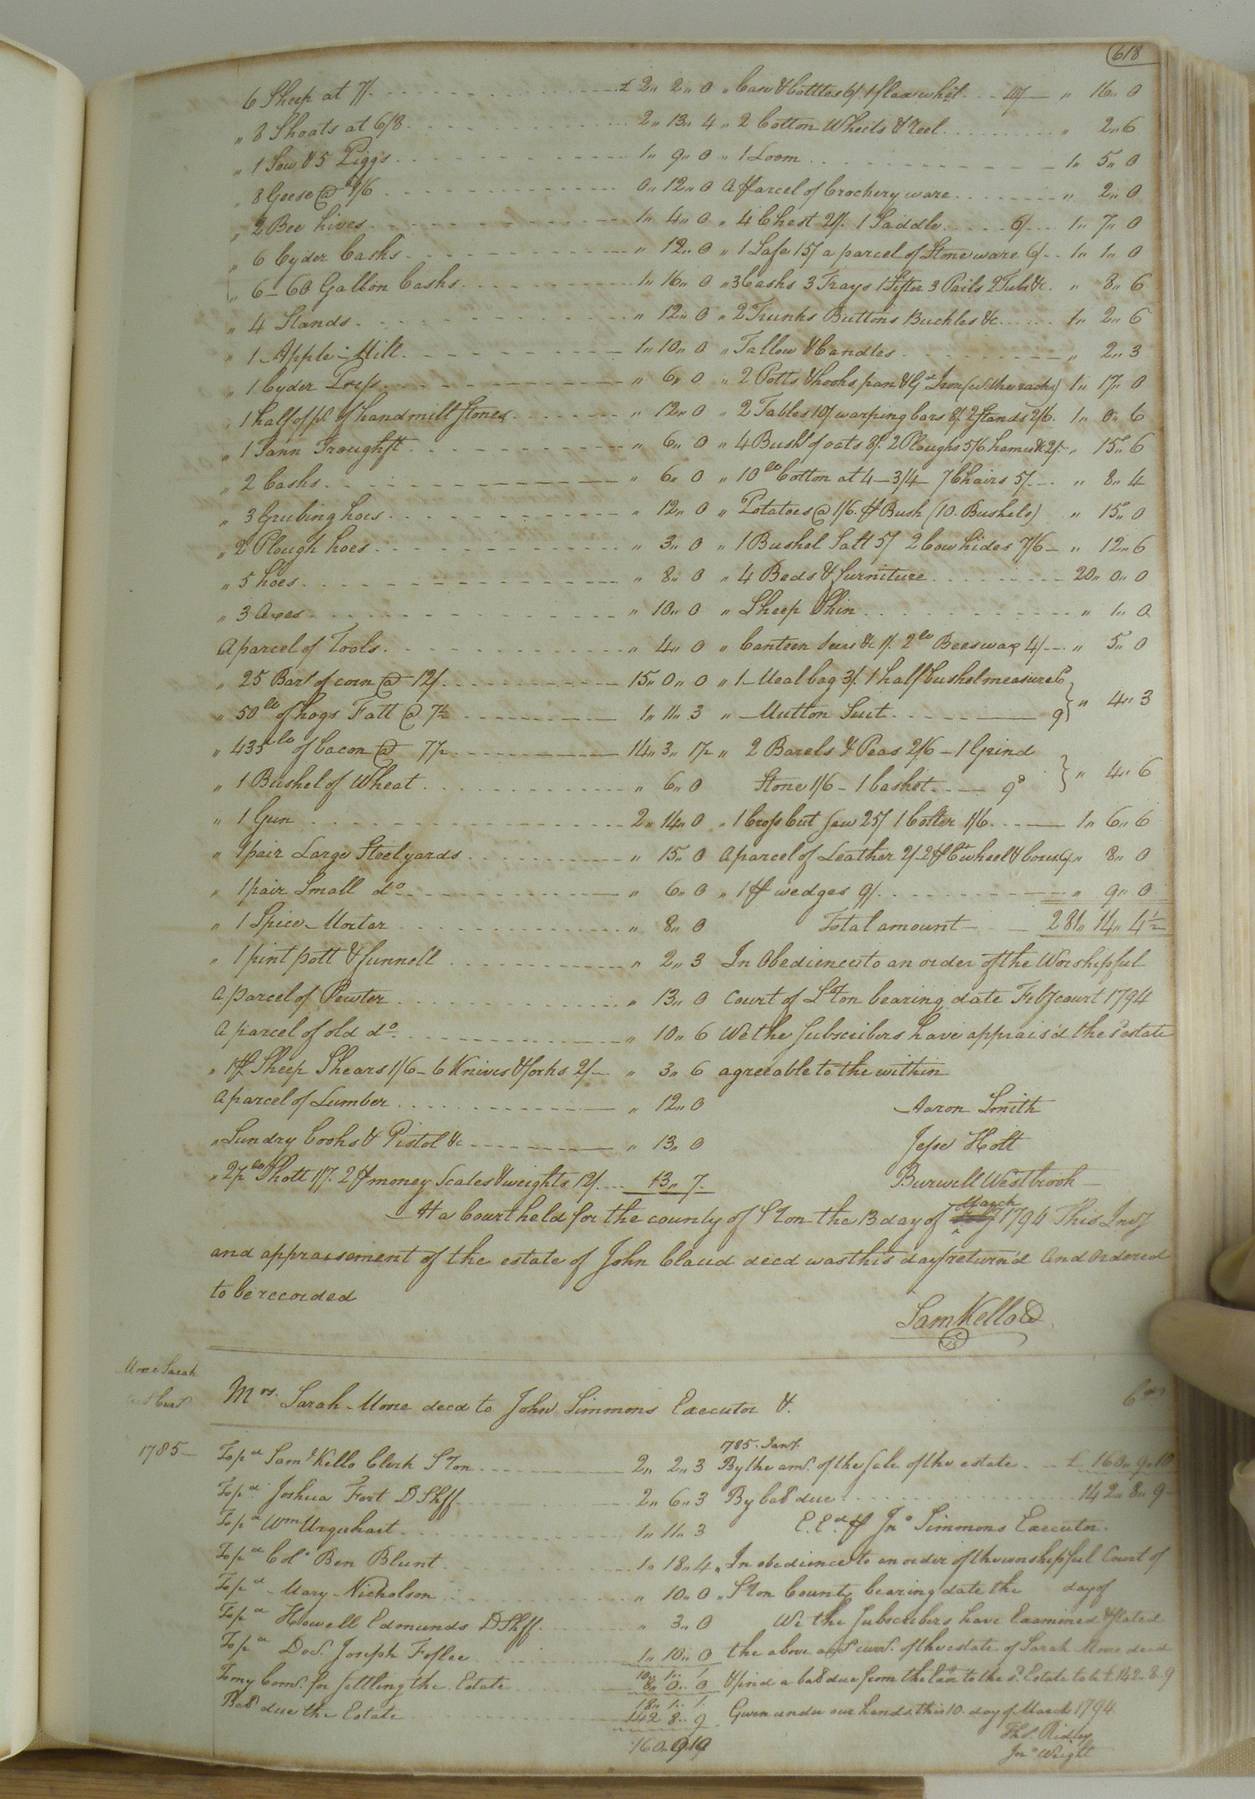 618
6 Sheep at 7/. £ 2,, 2,, 0
,, 8 Shoats at 6/8 2,, 13,, 4
,, 1 Sow & 5 Piggs 1,, 9,, 0
,, 8 Geese @ 1/6 0,, 12,, 0
,, 2 Bee hives 1,, 4,, 0
,, 6 Cyder Casks ,, 12,, 0
,, 6-60 Gallon Casks 1,, 16,, 0
,, 4 Stands ,, 12,, 0
,, 1 Apple-Mill 1,, 10,, 0
,, 1 Cyder Press ,, 6,, 0
,, 1 half of pr. of handmill Stones ,, 12,, 0
,, 1 Tann Trough ,, 6,, 0
,, 2 Casks ,, 6,, 0
,, 3 Grubing hoes ,, 12,, 0
,, 2 Plough hoes ,, 3,, 0
,, 5 hoes ,, 8,, 0
,, 3 Axes ,, 10,, 0
A parcel of Tools ,, 4,, 0
,, 25 Barls of corn @ 12/. 15,, 0,, 0
,, 50 lb of hogs Fatt @ 7½ 1,, 11,, 3
,, 435 lb of bacon @ 14,, 3,, 1½
,, 1 Bushel of Wheat ,, 6,, 0
,, 1 Gun 2,, 14,, 0
,, 1 pair Large Steelyards ,, 15,, 0
,, 1 pair Small do ,, 6,, 0
,, 1 Spice-Morter ,, 8,, 0
,, 1 pint pott & funnell ,, 2,, 3
A parcel of Pewter ,, 13,, 0
A parcel of old do ,, 10,, 6
,, 1 pr Sheep Shears 1/6 - 6 Knives & forks 2/- ,, 3,, 6
A parcel of Lumber ,, 12,, 0
,, Sundry books & Pistol &c ,, 13,, 0
Shott 1/7. 2 pr money Scales & weights 12/. 13,, 7
,, Case & bottles 6/ 1 flax wheel 10/ ,, 16,, 0
,, 2 Cotton Wheels & reel ,, 2,, 6
,, 1 Loom 1,, 5,, 0
A parcel of Crockery ware ,, 2,, 0
,, 4 Chest 21/. 1 Saddle 6/ 1,, 7,, 0
,, 1 Safe 15/ a parcel of Stone ware 6/ 1,, 1,, 0
,, 3 Casks 3 Trays 1 Sifter 3 Pails 2 Tubs &c. ,, 8,, 6
,, 2 Trunks Buttons Buckles &c 1,, 2,, 6
,, Tallow & Candles ,, 2,, 3
,, 2 Potts & hooks pan & Gd. Iron 1,, 17,, 0
,, 2 Tables 10/ warping bars 8/. 2 Stands 2/6. 1,, 0,, 6
,, 4 Bushs of oats 8/. 2 Ploughs 5/6 hames &c 2/- ,, 15,, 6
,, 10 lb Cotton at 4 - 3/4 - 7 Chairs 5/. ,, 8,, 4
,, Potatoes @ 1/6. pr Bush (10. Bushels) ,, 15,, 0
,, 1 Bushel Salt 5/ 2 Cow hides 7/6 - ,, 12,, 6
,, 4 Beds & furniture 20,, 0,, 0
,, Sheep Skin ,, 1,, 0
,, Canteen &c 1/. 2 lb Beeswax 4/- ,, 5,, 0
,, 1 Meal bag 3/. 1 half bushel measure 6
,, Mutton Suit 9 } ,, 4,, 3
,, 2 Barels & Peas 2/6 - 1 Grind
Stone 1/6 - 1 basket 9d } ,, 4,, 6
,, 1 Cross Cut Saw 25/ 1 Cotter 1/6 1,, 6,, 6
A parcel of Leather 2/. 2 pr Ct wheel & boxes 6/ ,, 8,, 0
,, 1 pr wedges 9/. ,, 9,, 0
Total amount 281,, 14,, 4½
In Obedience to an order of the Worshipful
Court of S'ton bearing date Feby court 1794
We the Subscribers have apprais'd the Estate
agreeable to the within
Aaron Smith
Jesse Holt
Burwell Westbrook
At a Court held for the county of S'ton the 13 day of March 1794 This Invy
and appraisement of the estate of John Claud decd was this day return'd And Ordered
to be recorded
Sam Kello CC
More Sarah
Mrs. Sarah More decd to John Simmons Executor &.
1785
To pd Saml Kello Clerk S'ton 2,, 2,, 3
To pd Joshua Fort D Shff 2,, 6,, 3
To pd Wm Urquhart 1,, 11,, 3
To pd Colo Ben Blunt 1,, 18,, 4
To pd Mary Nicholson ,, 10,, 0
To pd Howell Edmunds D Shff ,, 3,, 0
To pd Docr. Joseph 1,, 10,, 0
10,, 1,, 1
To my Coms. for settling the Estate 8,, 0,, 0
18,, 1,, 1
Bale due the Estate 142 8,, 9
160,, 9,, 10
1785. Jany.
By the amt. of the Sale of the estate £ 160,, 9,, 10
By bale due 142,, 8,, 9
E.Ed pr Jno Simmons Executor.
In obedience to an order of the worshipful Court of
S'ton County bearing date the day of
We the Subscribers have Examined & Stated
the above accot curst. of the estate of Sarah More decd
& find a bale due from the Exr to the sd. Estate to be £ 142-8-9
Given under our hands this 10. day of March 1794
Ths. Ridley
Jno Wright